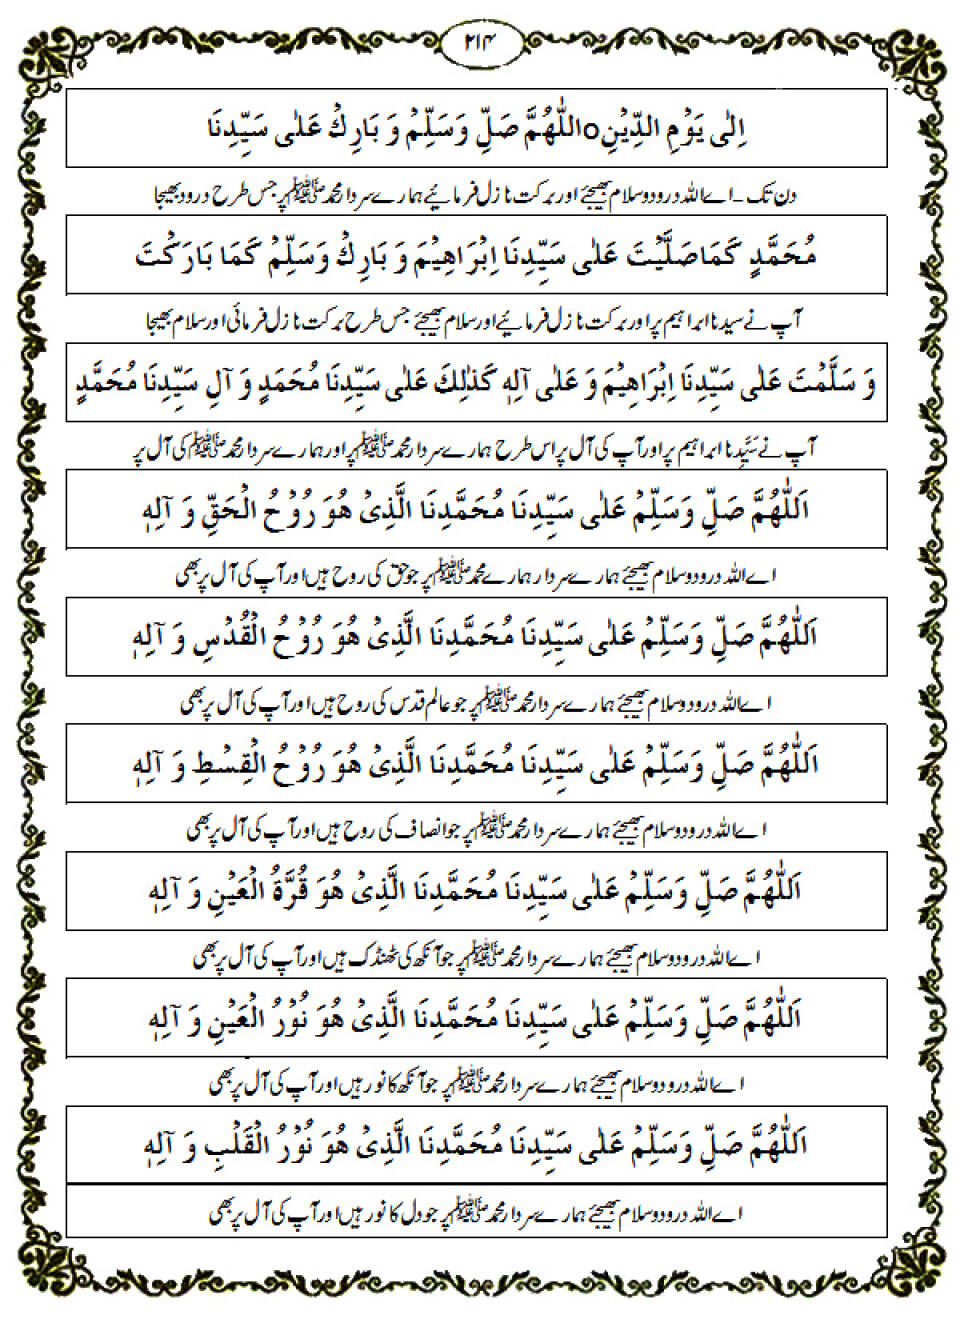 ۲۱۴
اِلٰی یَوْمِ الدِّیْنِo اللّٰهُمَّ صَلِّ وَسَلِّمْ وَ بَارِكْ عَلٰی سَیِّدِنَا
دن تک ۔ اے اللہ درود و سلام بھیجئے اور برکت نازل فرمائیے ہمارے سردار محمد ﷺ پر جس طرح درود بھیجا
مُحَمَّدٍ كَمَا صَلَّیْتَ عَلٰی سَیِّدِنَا اِبْرَاهِیْمَ وَ بَارِكْ وَسَلِّمْ كَمَا بَارَكْتَ
آپ نے سیدنا ابراہیم پر اور برکت نازل فرمائیے اور سلام بھیجئے جس طرح برکت نازل فرمائی اور سلام بھیجا
وَ سَلَّمْتَ عَلٰی سَیِّدِنَا اِبْرَاهِیْمَ وَ عَلٰی آلِهٖ كَذٰلِكَ عَلٰی سَیِّدِنَا مُحَمَدٍ وَ آلِ سَیِّدِنَا مُحَمَّدٍ
آپ نے سَیِّدِنا ابراہیم پر اور آپ کی آل پر اس طرح ہمارے سردار محمد ﷺ پر اور ہمارے سردار محمد ﷺ کی آل پر
اَللّٰهُمَّ صَلِّ وَسَلِّمْ عَلٰی سَیِّدِنَا مُحَمَّدِنَا الَّذِیْ هُوَ رُوْحُ الْحَقِّ وَ آلِهٖ
اے اللہ درود و سلام بھیجئے ہمارے سردار ہمارے محمد ﷺ پر جو حق کی روح ہیں اور آپ کی آل پر بھی
اَللّٰهُمَّ صَلِّ وَسَلِّمْ عَلٰی سَیِّدِنَا مُحَمَّدِنَا الَّذِیْ هُوَ رُوْحُ الْقُدْسِ وَ آلِهٖ
اے اللہ درود و سلام بھیجئے ہمارے سردار محمد ﷺ پر جو عالم قدس کی روح ہیں اور آپ کی آل پر بھی
اَللّٰهُمَّ صَلِّ وَسَلِّمْ عَلٰی سَیِّدِنَا مُحَمَّدِنَا الَّذِیْ هُوَ رُوْحُ الْقِسْطِ وَ آلِهٖ
اے اللہ درود و سلام بھیجئے ہمارے سردار محمد ﷺ پر جو انصاف کی روح ہیں اور آپ کی آل پر بھی
اَللّٰهُمَّ صَلِّ وَسَلِّمْ عَلٰی سَیِّدِنَا مُحَمَّدِنَا الَّذِیْ هُوَ قُرَّةُ الْعَیْنِ وَ آلِهٖ
اے اللہ درود و سلام بھیجئے ہمارے سردار محمد ﷺ پر جو آنکھ کی ٹھنڈک ہیں اور آپ کی آل پر بھی
اَللّٰهُمَّ صَلِّ وَسَلِّمْ عَلٰی سَیِّدِنَا مُحَمَّدِنَا الَّذِیْ هُوَ نُوْرُ الْعَیْنِ وَ آلِهٖ
اے اللہ درود و سلام بھیجئے ہمارے سردار محمد ﷺ پر جو آنکھ کا نور ہیں اور آپ کی آل پر بھی
اَللّٰهُمَّ صَلِّ وَسَلِّمْ عَلٰی سَیِّدِنَا مُحَمَّدِنَا الَّذِیْ هُوَ نُوْرُ الْقَلْبِ وَ آلِهٖ
اے اللہ درود و سلام بھیجئے ہمارے سردار محمد ﷺ پر جو دل کا نور ہیں اور آپ کی آل پر بھی